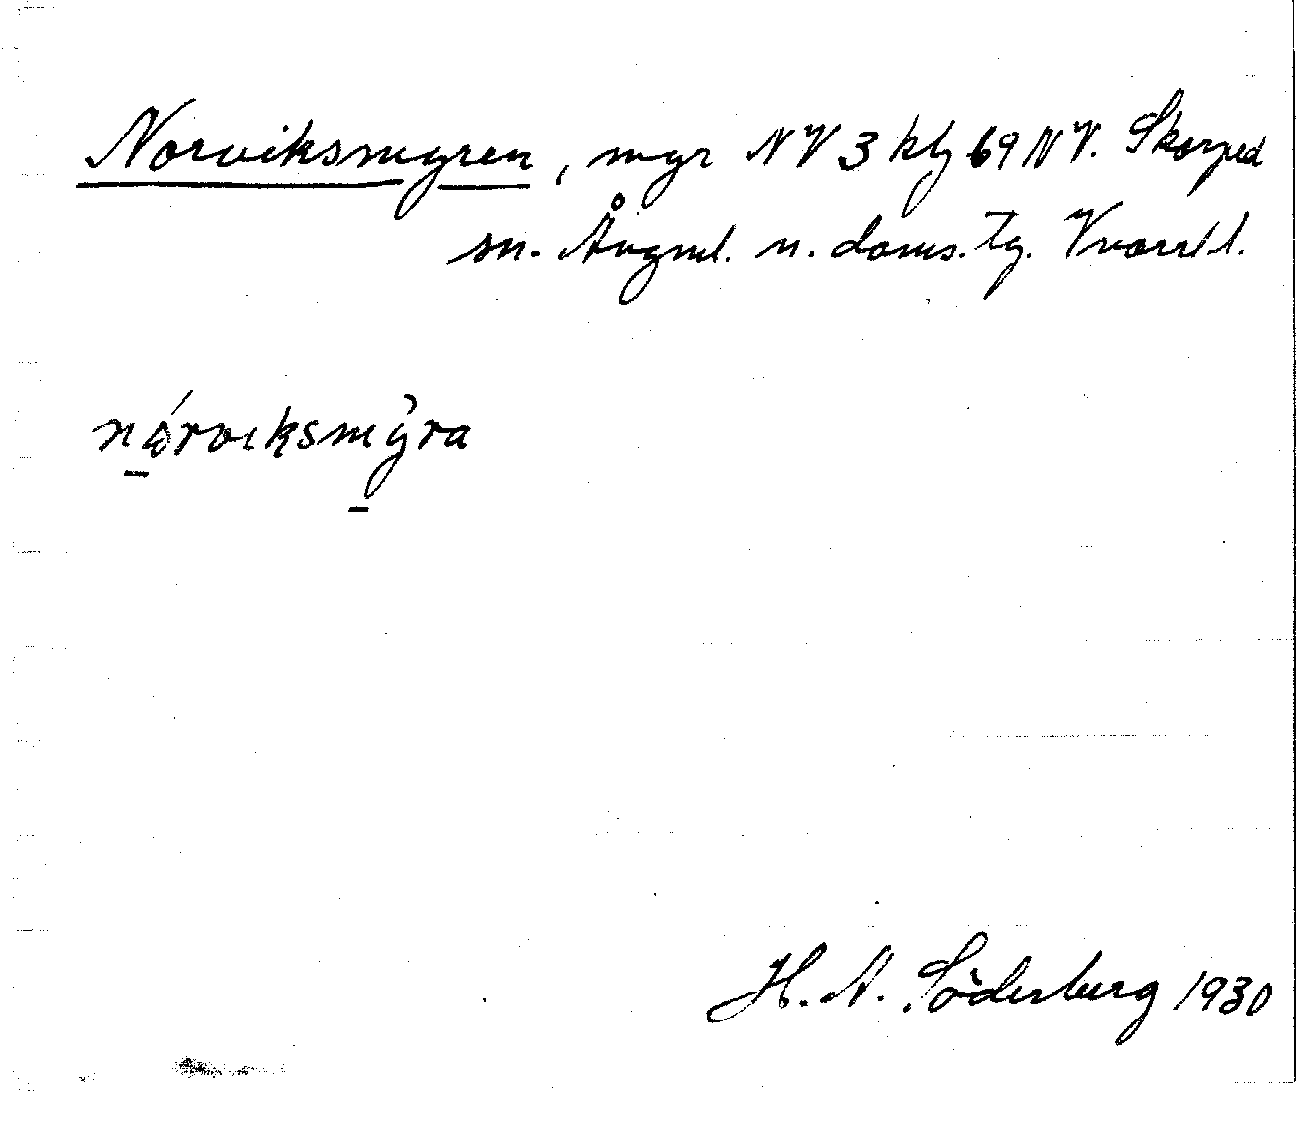 Norviksmyren, myr NV 3 kbl 69 NV. Skorped
sn. Ångml. n. doms. Tg. Vnorrl l.
nórviksmy̆ra
H. A. Söderberg 1930